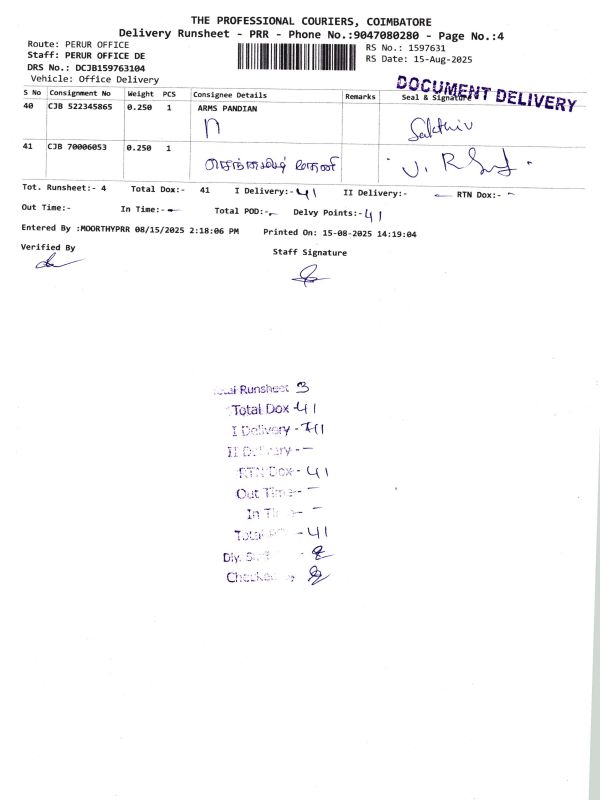 THE PROFESSIONAL COURIERS, COIMBATORE
Delivery Runsheet - PRR - Phone No.:9047080280 - Page No.:4
Route: PERUR OFFICE
RS No.: 1597631
Staff: PERUR OFFICE DE
RS Date: 15-Aug-2025
DRS No.: DCJB159763104
Vehicle: Office Delivery
DOCUMENT DELIVERY
S No Consignment No Weight PCS Consignee Details Remarks Seal & Signature
40 CJB 522345865 0.250 1 ARMS PANDIAN
Sakthiv
41 CJB 70006053 0.250 1
Tot. Runsheet:- 4 Total Dox:- 41 I Delivery:- 41 II Delivery:- - RTN Dox:- -
Out Time:- In Time:- - Total POD:- - Delvy Points:- 41
Entered By :MOORTHYPRR 08/15/2025 2:18:06 PM Printed On: 15-08-2025 14:19:04
Verified By
Staff Signature
Total Runsheet 3
Total Dox - 41
I Delivery - 41
II Delivery - -
RTN Dox - 41
Out Time - -
In Time - -
Total - 41
Dly.
Checked